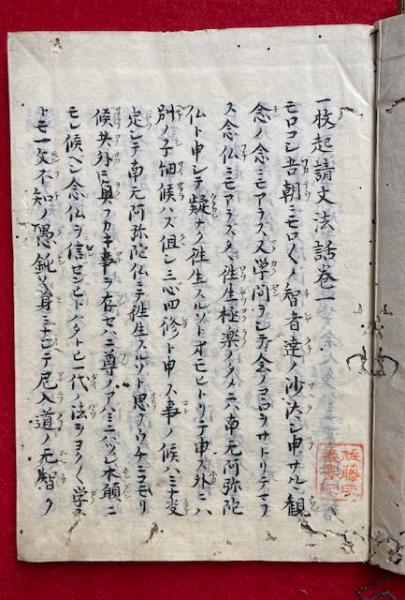 一枚起請文法話巻一
モロコシ吾朝ニモロ〳〵ノ智者達ノ沙汰シ申サルヽ観
念ノ念ニモアラス又学問ヲシテ念ノコヽロヲサトリテマフ
ス念仏ニモアラスタヽ徃生極楽ノタメニハ南无阿弥陀
仏ト申シテ疑ナク徃生スルソトオモヒトリテ申ス外ニハ
別ノ子細候ハス但シ三心四修ト申ス事ノ候ハミナ决
定シテ南无阿弥陀仏ニテ徃生スルソト思フウチニコモリ
候其外ニ奥フカキ事ヲ存セハ二尊ノアハミニハツレ本願ニ
モレ候ヘシ念仏ヲ信センヒトハタトヒ一代ノ法ヲヨク〳〵学ス
トモ一文不知ノ愚鈍ノ身ニナシテ尼入道ノ无智ノ
佐藤氏